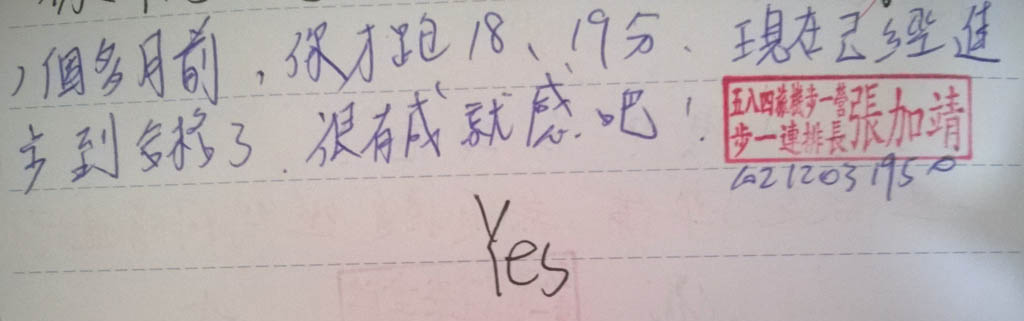 1個多月前，你才跑18、19分、現在已經進
步到合格了．很有成就感吧！
五八四旅機步一營
步一連排長張加靖
1021203 1950
Yes